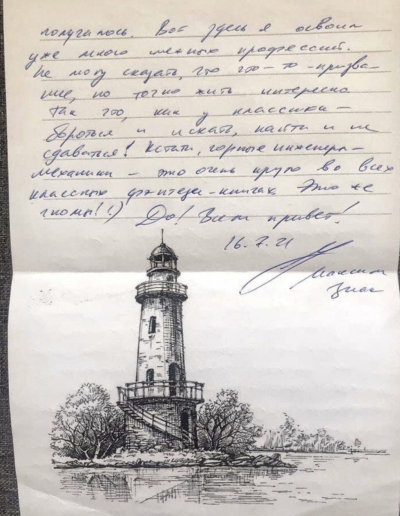 получилось. Вот здесь я освоил
уже много мелких профессий.
Не могу сказать, что это-то-призва-
ние, но точно жить интересно
Так что, как у классика -
бороться и искать, найти и не
сдаваться! Кстати, горные инженеры-
механики - это очень круто во всех
классных фэнтези-книгах. Это же
гномы!:) До! Всем привет!
16.7.21
Максим
Знак